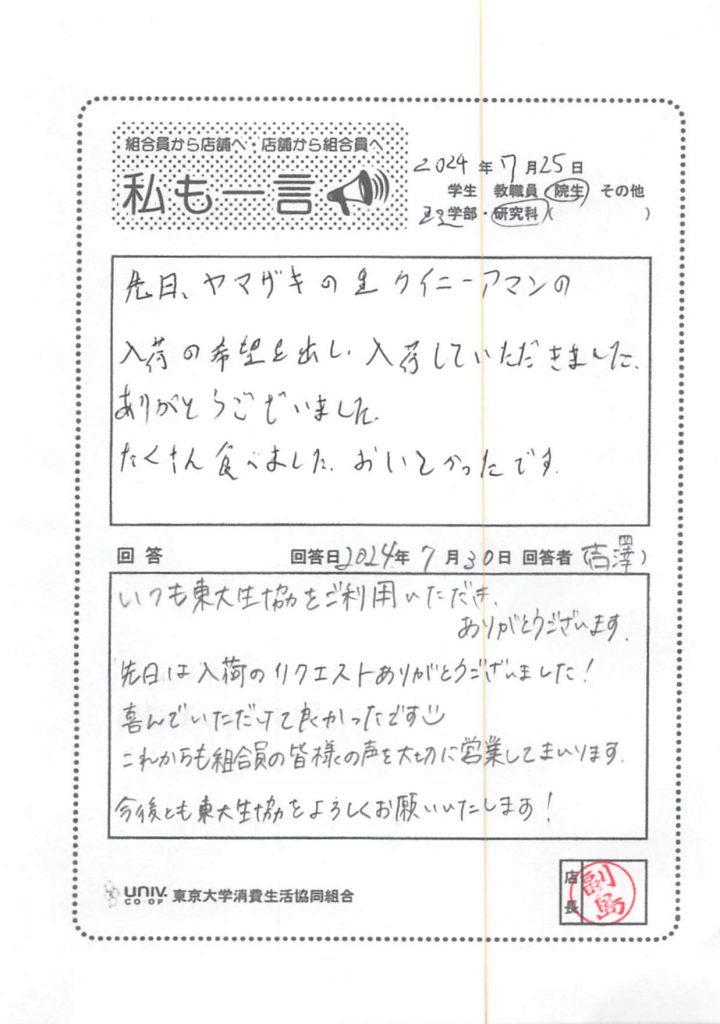 組合員から店舗へ 店舗から組合員へ
私も一言
2024年7月25日
学生 教職員 院生 その他
理学部・研究科( )
先日、ヤマザキの黒クイニーアマンの
入荷の希望を出し、入荷していただきました。
ありがとうございました。
たくさん食べました。おいしかったです。
回答 回答日2024年7月30日 回答者 吉澤)
いつも東大生協をご利用いただき、
ありがとうございます。
先日は入荷のリクエストありがとうございました!
喜んでいただけて良かったです
これからも組合員の皆様の声を大切に営業してまいります。
今後とも東大生協をよろしくお願いいたします!
UNIV. CO-OP 東京大学消費生活協同組合
店長
副島